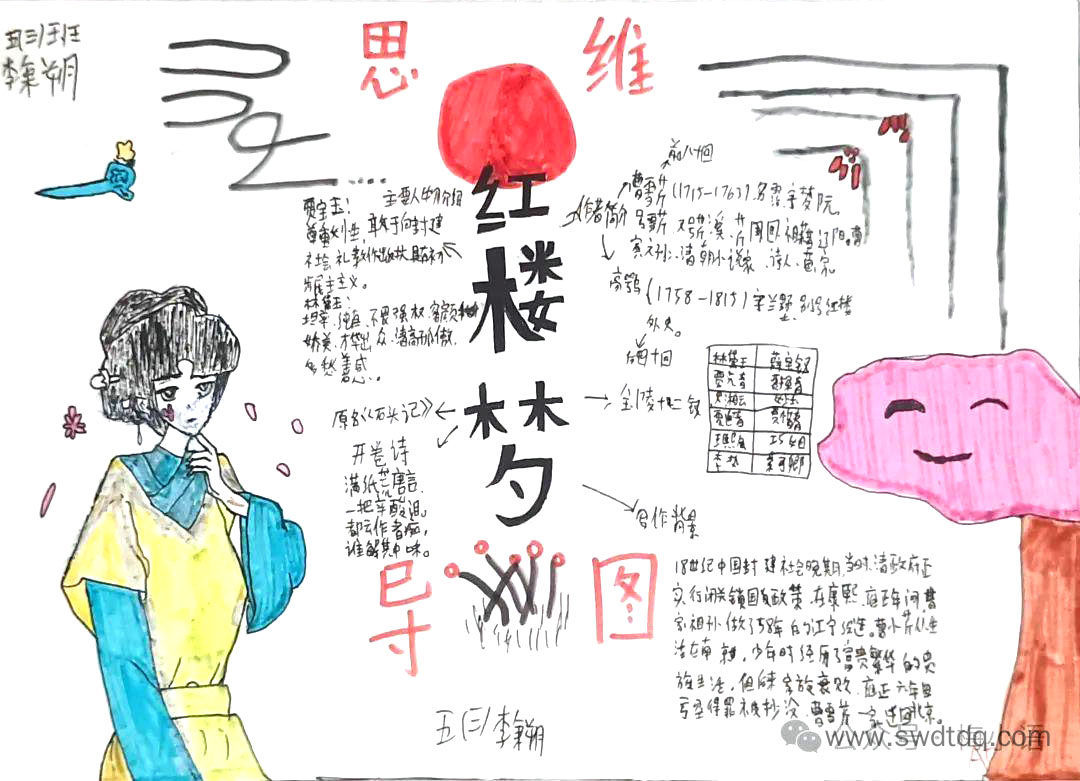 五(三)班
思维
导图
红楼梦
主要人物介绍
贾宝玉：
尊重个性，敢于向封建
社会礼教作出
主义。
林黛玉：
坦率、纯真、不畏强权、容颜
娇美、才华出众、清高孤傲、
多愁善感。
原名《石头记》
开卷诗
满纸荒唐言，
一把辛酸泪。
都云作者痴，
谁解其中味。
作者简介
前八十回
曹雪芹(1715-1763)，名霑，字梦阮，
号雪芹，又号芹溪、芹圃
清朝小说家、诗人、画家
高鹗(1758-1815)字兰墅，别号红楼
外史。
后四十回
金陵十二钗
林黛玉 薛宝钗
贾元春 贾探春
史湘云 妙玉
贾迎春 贾惜春
王熙凤 巧姐
李纨 秦可卿
写作背景
18世纪中国封建社会晚期，当时，清政府正
实行闭关锁国的政策，在康熙、雍正年间，曹
家祖孙做了58年的江宁织造。曹小芹从生
活在南京，少年时经历了富贵繁华的贵
族生活，但后来家族衰败，雍正六年因
亏空得罪被抄没，曹雪芹一家迁回北京。
五(三)
www.swdtdq.com